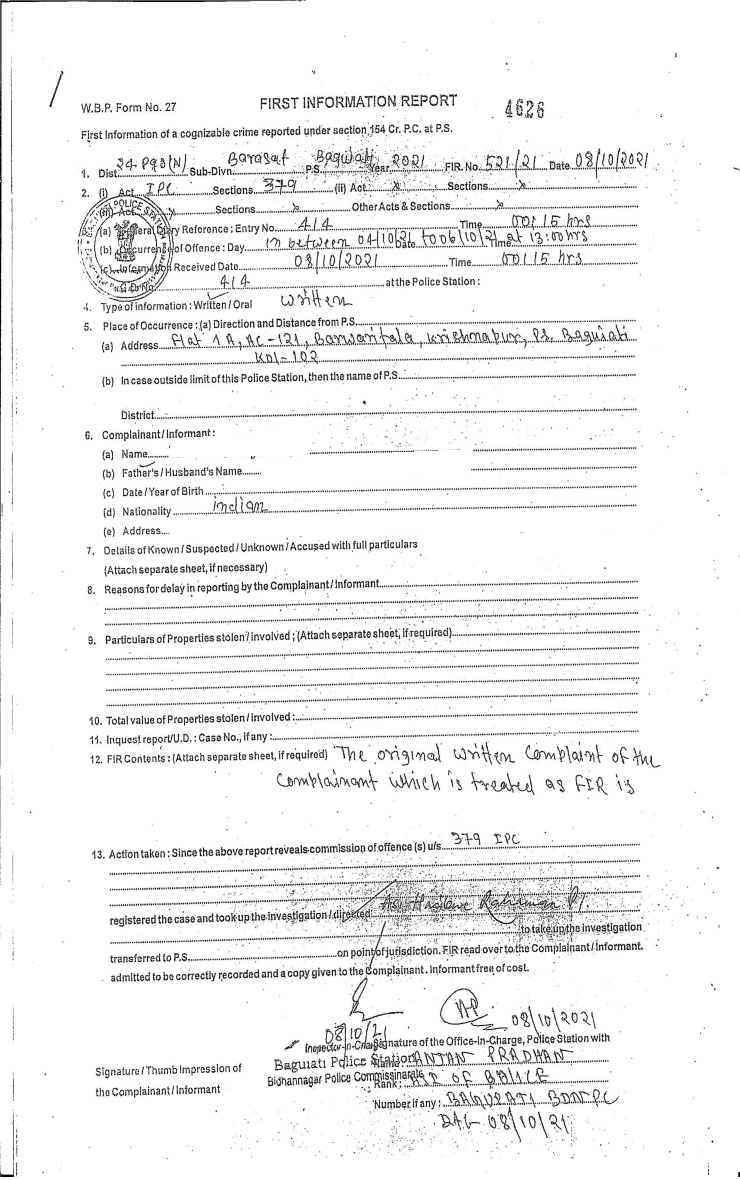 W.B.P. Form No. 27
FIRST INFORMATION REPORT
4626
First Information of a cognizable crime reported under section 154 Cr. P.C. at P.S.
1. Dist. 24-Pgs(N) Sub-Divn. Barasat P.S. Baguiati Year 2021 FIR. No. 521/21 Date 08/10/2021
2. (i) Act IPC Sections 379 (ii) Act x Sections x
(iii) Act x Sections x Other Acts & Sections x
3. (a) General Diary Reference : Entry No. 414 Time 00:15 hrs
(b) Occurrence of Offence : Day in between 04/10/21 Date to 06/10/21 Time at 13:00 hrs
(c) Information Received Date 08/10/2021 Time 00:15 hrs
G.D. No. 414 at the Police Station :
4. Type of information : Written / Oral written
5. Place of Occurrence : (a) Direction and Distance from P.S.
(a) Address Flat 1A, AC-121, Barwaritala, Krishnapur, P.S. Baguiati
Kol-102
(b) In case outside limit of this Police Station, then the name of P.S.
District
6. Complainant / Informant :
(a) Name
(b) Father's / Husband's Name
(c) Date / Year of Birth
(d) Nationality indian
(e) Address
7. Details of Known / Suspected / Unknown / Accused with full particulars
(Attach separate sheet, if necessary)
8. Reasons for delay in reporting by the Complainant / Informant
9. Particulars of Properties stolen / involved ; (Attach separate sheet, if required)
10. Total value of Properties stolen / involved :
11. Inquest report/U.D. : Case No., if any :
12. FIR Contents : (Attach separate sheet, if required) The original written complaint of the
complainant which is treated as FIR is
13. Action taken : Since the above report reveals commission of offence (s) u/s 379 IPC
registered the case and took up the investigation / directed ASI Rahaman
to take up the investigation
transferred to P.S. on point of jurisdiction. FIR read over to the Complainant / Informant.
admitted to be correctly recorded and a copy given to the Complainant. Informant free of cost.
08/10/2021
08/10/21
Inspector-in-Charge Signature of the Office-in-Charge, Police Station with
Baguiati Police Station Name ANJAN PRADHAN
Bidhannagar Police Commissionarate Rank : OF POLICE
Signature / Thumb Impression of
the Complainant / Informant
Number if any : BAGUIATI BDNPC
DAT- 08/10/21